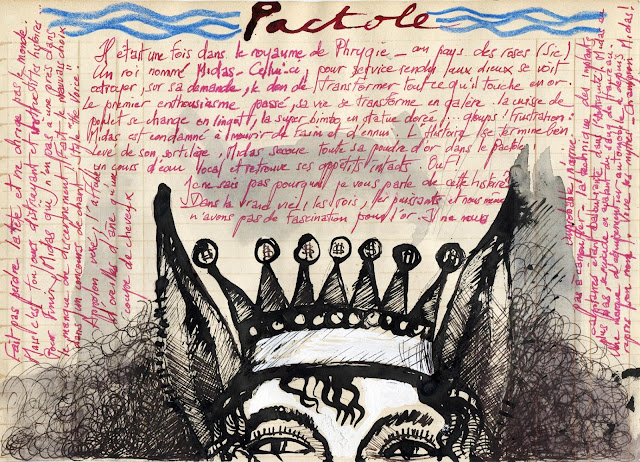 Pactole
Il était une fois dans le royaume de Phrygie _ au pays des roses (sic)
Un roi nommé Midas - Celui-ci, pour service rendu aux dieux se voit
octroyer, sur sa demande, le don de transformer tout ce qu'il touche en or.
Le premier enthousiasme passé, sa vie se transforme en galère. La cuisse de
poulet se change en lingot, la super bimbo en statue dorée,... gloups! Frustration:
Midas est condamné à mourir de faim et d'ennui. L'histoire se termine bien.
Levé de son sortilège, Midas secoue toute sa poudre d'or dans le Pactole
un cours d'eau local et retrouve ses appétits intacts. Ouf!
Je ne sais pas pourquoi je vous parle de cette histoire?
Dans la vraie vie, les rois, les puissants et nous même
n'avons pas de fascination pour l'or. Il ne nous
Fait pas perdre la tête et ne dirige pas le monde.
Mais c'est toujours distrayant et instructif les hybris...
Pour finir, Midas qui n'en est pas à une près dans
le manque de discernement, fait le mauvais choix
dans un concours de chant, style "the Voice"
Apollon vexé, l'affuble
d'oreilles d'âne qu'une
coupe de cheveux
improbable n'arrive
pas à camoufler. La technique des implants
capillaires étant balbutiante dans l'antiquité, Midas ne
peut pas se suicider en avalant du sang de taureau.
Une marque d'